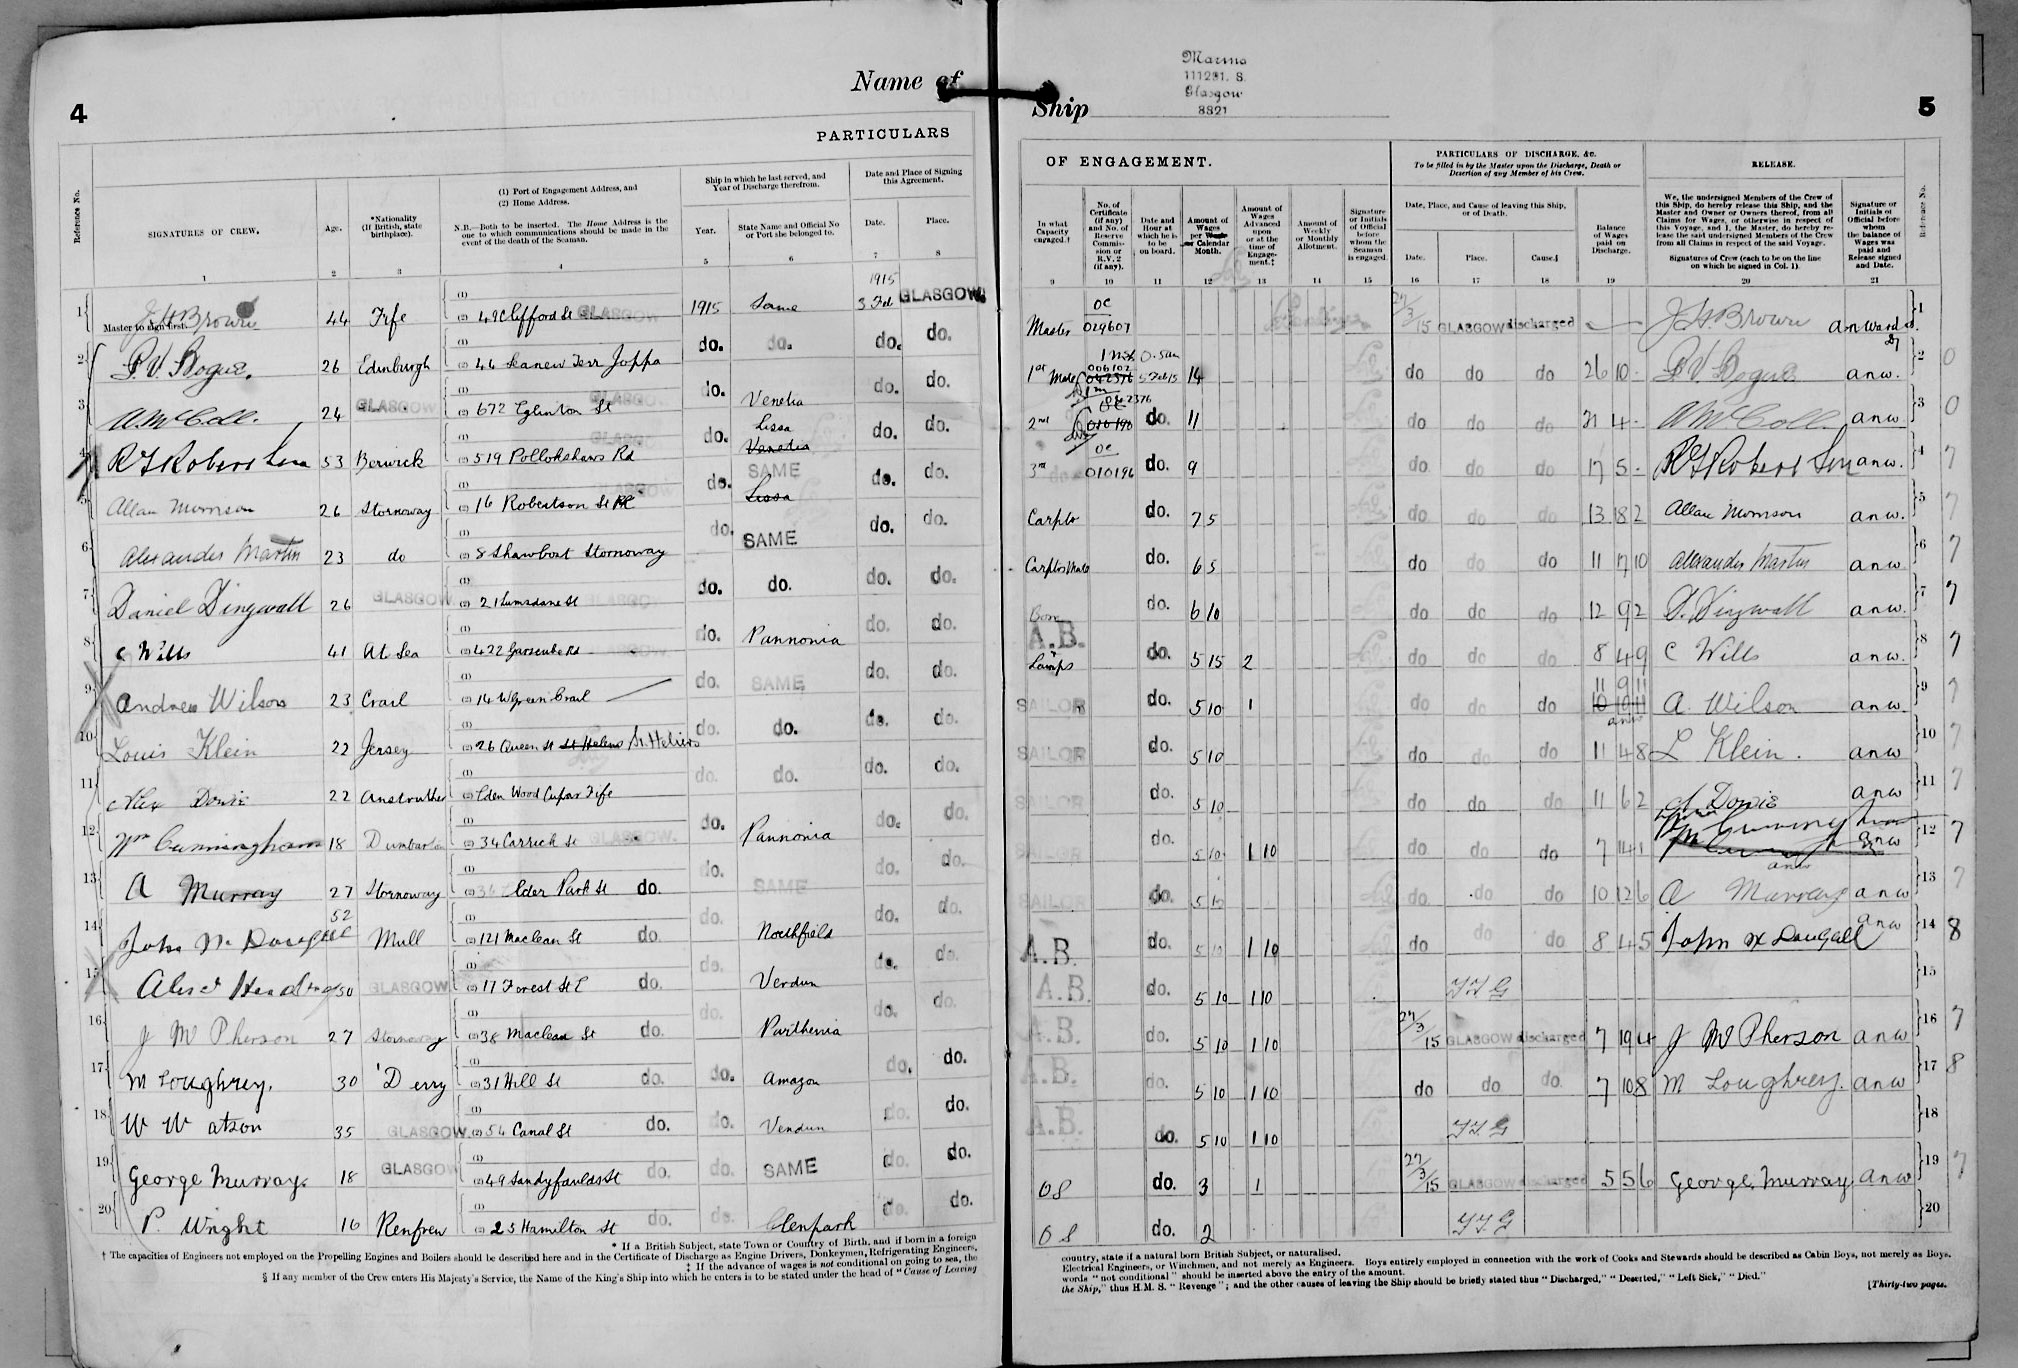 4
Name of
PARTICULARS
Reference No.
SIGNATURES OF CREW.
Age.
*Nationality
(If British, state
birthplace).
(1) Port of Engagement Address, and
(2) Home Address.
N.B.—Both to be inserted. The Home Address is the
one to which communications should be made in the
event of the death of the Seaman.
Ship in which he last served, and
Year of Discharge therefrom.
Year.
State Name and Official No
or Port she belonged to.
Date and Place of Signing
this Agreement.
Date.
Place.
1 2 3 4 5 6 7 8
1 Master to sign first. J H Brown 44 Fife (1) (2) 49 Clifford St GLASGOW 1915 Same 1915 3 Feb GLASGOW.
2 P. V. Bogue. 26 Edinburgh (1) (2) 46 Seaview Terr Joppa do. do. do. do.
3 A. McColl. 24 GLASGOW (1) (2) 672 Eglinton St GLASGOW do. Venetia do. do.
4 53 Berwick (1) (2) 519 Pollokshaws Rd GLASGOW do. Lissa Venetia do. do.
5 Allan Morrison 26 Stornoway (1) (2) 16 Robertson St do. SAME Lissa do. do.
6 Alexander Martin 23 do (1) (2) 8 Shawbost Stornoway do. SAME do. do.
7 Daniel Dingwall 26 GLASGOW (1) (2) 21 Lumsdane St GLASGOW do. do. do. do.
8 C Wills 41 At Sea (1) (2) 422 Rd do. Pannonia do. do.
9 Andrew Wilson 23 Crail (1) (2) 14 W Green Crail do. SAME do. do.
10 Louis Klein 22 Jersey (1) (2) 26 Queen St St Helens St. Heliers do. do. do. do.
11 Alex Dowie 22 Anstruther (1) (2) Eden Wood Cupar Fife do. do. do. do.
12 Wm Cunningham 18 Dumbarton (1) (2) 34 Carrick St GLASGOW. do. Pannonia do. do.
13 A Murray 27 Stornoway (1) (2) Elder Park St do. do. SAME do. do.
14 John McDougall 52 Mull (1) (2) 121 Maclean St do. do. Northfield do. do.
15 50 GLASGOW (1) (2) 17 Forest St do. do. Verdun do. do.
16 J McPherson 27 Stornoway (1) (2) 38 Maclean St do. do. Parthenia do. do.
17 M Loughrey. 30 'Derry (1) (2) 31 Hill St do. do. Amazon do. do.
18 W Watson 35 GLASGOW. (1) (2) 54 Canal St do. do. Verdun do. do.
19 George Murray. 18 GLASGOW (1) (2) 49 Sandyfaulds St do. do. SAME do. do.
20 P. Wright 16 Renfrew (1) (2) 25 Hamilton St do. do. Glenpark do. do.
* If a British Subject, state Town or Country of Birth, and if born in a foreign
† The capacities of Engineers not employed on the Propelling Engines and Boilers should be described here and in the Certificate of Discharge as Engine Drivers, Donkeymen, Refrigerating Engineers,
‡ If the advance of wages is not conditional on going to sea, the
§ If any member of the Crew enters His Majesty's Service, the Name of the King's Ship into which he enters is to be stated under the head of "Cause of Leaving
Ship
Marina
111291. S.
Glasgow
8821
5
OF ENGAGEMENT.
PARTICULARS OF DISCHARGE, &c.
To be filled in by the Master upon the Discharge, Death or
Desertion of any Member of his Crew.
RELEASE.
In what
Capacity
engaged.†
No. of
Certificate
(if any)
and No. of
Reserve
Commis-
sion or
R.V.2
(if any).
Date and
Hour at
which he is
to be
on board.
Amount of
Wages
per Week
or Calendar
Month.
Amount of
Wages
Advanced
upon
or at the
time of
Engage-
ment.‡
Amount of
Weekly
or Monthly
Allotment.
Signature
or Initials
of Official
before
whom the
Seaman
is engaged.
Date, Place, and Cause of leaving this Ship,
or of Death.
Date.
Place.
Cause.§
Balance
of Wages
paid on
Discharge.
We, the undersigned Members of the Crew of
this Ship, do hereby release this Ship, and the
Master and Owner or Owners thereof, from all
Claims for Wages, or otherwise in respect of
this Voyage, and I, the Master, do hereby re-
lease the said undersigned Members of the Crew
from all Claims in respect of the said Voyage.
Signatures of Crew (each to be on the line
on which he signed in Col. 1).
Signature or
Initials of
Official before
whom
the balance of
Wages was
paid and
Release signed
and Date.
Reference No.
9 10 11 12 13 14 15 16 17 18 19 20 21
Master OC 029607 27/3/15 GLASGOW discharged J H Brown 1
1st Mate 006102 042376 5 Feb 15 14 do do do 26 10 - P V Bogue anw. 2 0
2nd 042376 010196 do. 11 do do do 21 4 - A McColl. anw 3 0
3rd OC 010196 do. 9 do do do 17 5 - anw. 4 7
Carptr do. 7 5 do do do 13 18 2 Allan Morrison anw. 5 7
Carptrs Mate do. 6 5 do do do 11 17 10 Alexander Martin anw. 6 7
Bosn do. 6 10 do do do 12 9 2 D. Dingwall anw. 7 7
A.B. Lamps do. 5 15 2 do do do 8 4 9 C Wills anw. 8 7
SAILOR do. 5 10 1 do do do 11 9 11 10 19 11 anw A. Wilson anw. 9 7
SAILOR do. 5 10 do do do 11 4 8 L Klein. anw 10 7
SAILOR do. 5 10 do do do 11 6 2 A Dowie anw 11 7
SAILOR do. 5 10 1 10 do do do 7 14 1 Wm Cunningham anw anw 12 7
SAILOR do. 5 10 do do do 10 12 6 A Murray anw 13 7
A.B. do. 5 10 1 10 do do do 8 4 5 John McDougall anw 14 8
A.B. do. 5 10 1 10 15
A.B. do. 5 10 1 10 27/3/15 GLASGOW discharged 7 19 4 J McPherson anw 16 7
A.B. do. 5 10 1 10 do do do. 7 10 8 M Loughrey. anw 17 8
A.B. do. 5 10 1 10 18
OS do. 3 1 27/3/15 GLASGOW discharged 5 5 6 George Murray anw 19 7
OS do. 2 20
country, state if a natural born British Subject, or naturalised.
Electrical Engineers, or Winchmen, and not merely as Engineers. Boys entirely employed in connection with the work of Cooks and Stewards should be described as Cabin Boys, not merely as Boys.
words "not conditional" should be inserted above the entry of the amount.
the Ship," thus H.M. S. "Revenge"; and the other causes of leaving the Ship should be briefly stated thus "Discharged," "Deserted," "Left Sick," "Died."
[Thirty-two pages.